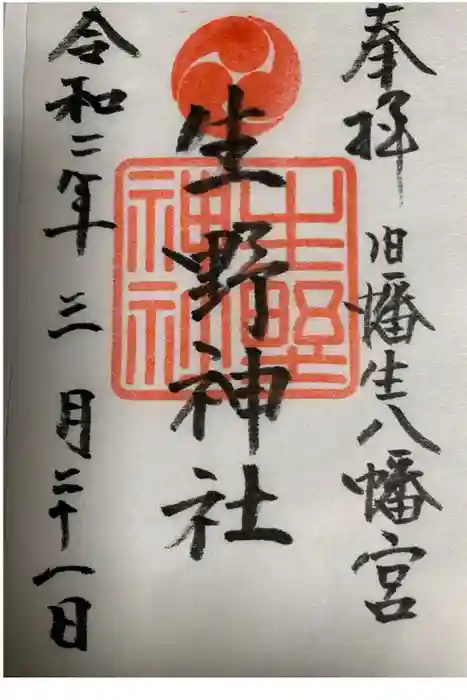 奉拝
旧幡生八幡宮
生野神社
生野神社
令和二年三月二十八日